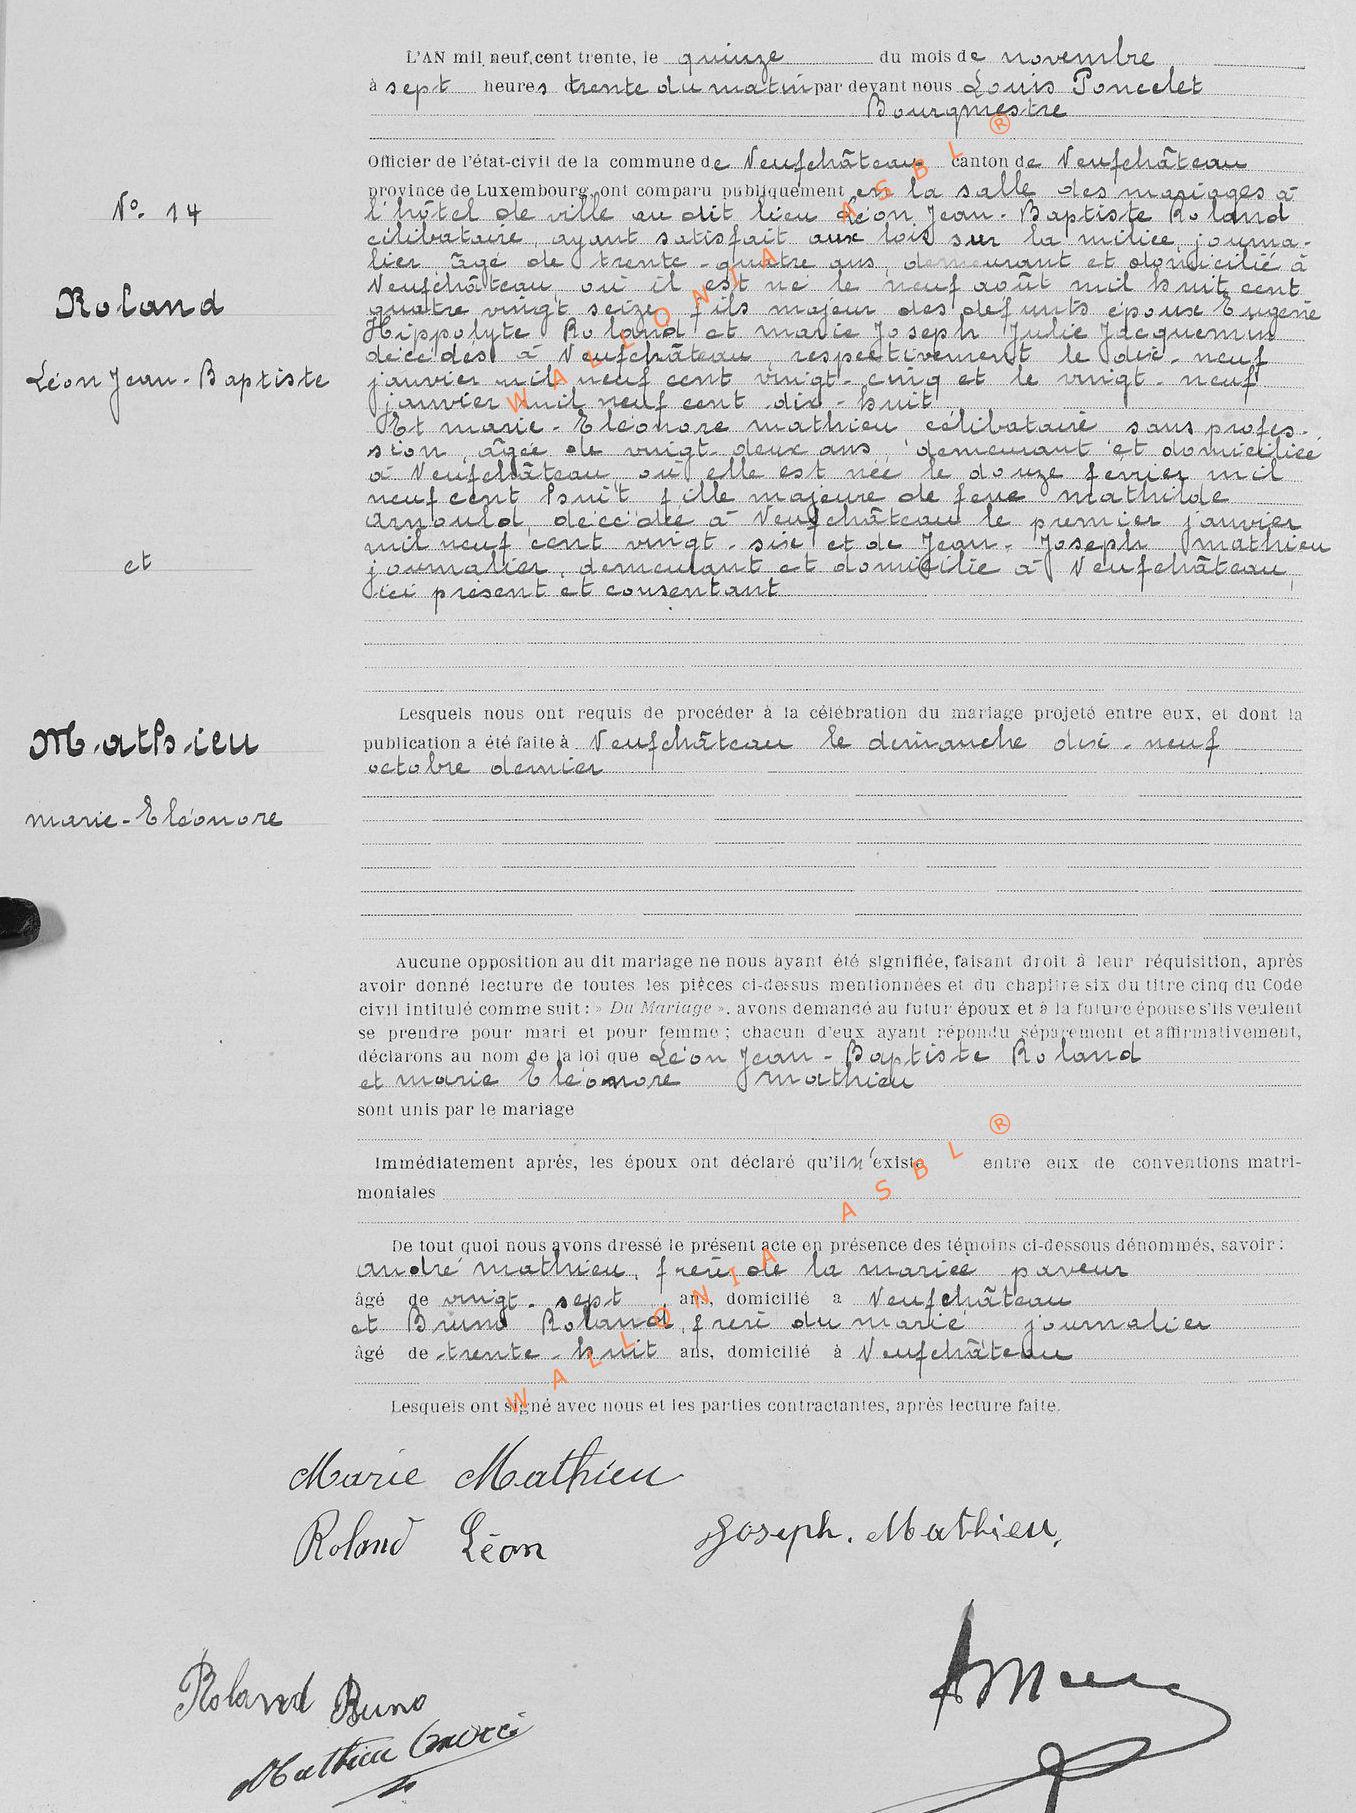 L'AN mil neuf cent trente, le quinze du mois de novembre
à sept heures trente du matin par devant nous Louis Poncelet
Bourgmestre
Officier de l'état-civil de la commune de Neufchâteau canton de Neufchâteau
province de Luxembourg, ont comparu publiquement en la salle des mariages à
l'hôtel de ville au dit lieu Léon Jean-Baptiste Roland
célibataire, ayant satisfait aux lois sur la milice, journa-
lier âgé de trente-quatre ans, demeurant et domicilié à
Neufchâteau, où il est né le neuf août mil huit cent
quatre vingt seize, fils majeur des défunts époux Eugène
Hippolyte Roland et marie Joseph Julie Jacquemin
décédés à Neufchâteau, respectivement le dix-neuf
janvier mil neuf cent vingt-cinq et le vingt-neuf
janvier mil neuf cent dix-huit
Et marie-Eléonore mathieu célibataire sans profes-
sion, âgée de vingt-deux ans, demeurant et domiciliée
à Neufchâteau où elle est née le douze fevrier mil
neuf cent huit fille majeure de feue mathilde
Arnould, décédée à Neufchâteau le premier janvier
mil neuf cent vingt-six et de Jean-Joseph mathieu
journalier, demeurant et domicilié à Neufchâteau,
ici présent et consentant
N° 14
Roland
Léon Jean-Baptiste
et
Mathieu
marie-Eléonore
Lesquels nous ont requis de procéder à la célébration du mariage projeté entre eux, et dont la
publication a été faite à Neufchâteau le dimanche dix-neuf
octobre dernier
Aucune opposition au dit mariage ne nous ayant été signifiée, faisant droit à leur réquisition, après
avoir donné lecture de toutes les pièces ci-dessus mentionnées et du chapitre six du titre cinq du Code
civil intitulé comme suit : » Du Mariage ». avons demandé au futur époux et à la future épouse s'ils veulent
se prendre pour mari et pour femme ; chacun d'eux ayant répondu séparément et affirmativement,
déclarons au nom de la loi que Léon Jean-Baptiste Roland
et marie Eléonore mathieu
sont unis par le mariage
Immédiatement après, les époux ont déclaré qu'il n'existe entre eux de conventions matri-
moniales
De tout quoi nous avons dressé le présent acte en présence des témoins ci-dessous dénommés, savoir :
André mathieu, frère de la mariée paveur
âgé de vingt-sept ans, domicilié à Neufchâteau
et Bruno Roland, frère du marié journalier
âgé de trente-huit ans, domicilié à Neufchâteau
Lesquels ont signé avec nous et les parties contractantes, après lecture faite.
Marie Mathieu
Roland Léon
Joseph. Mathieu.
Roland Bruno
Mathieu André
WALLONIA ASBL ®
WALLONIA ASBL ®